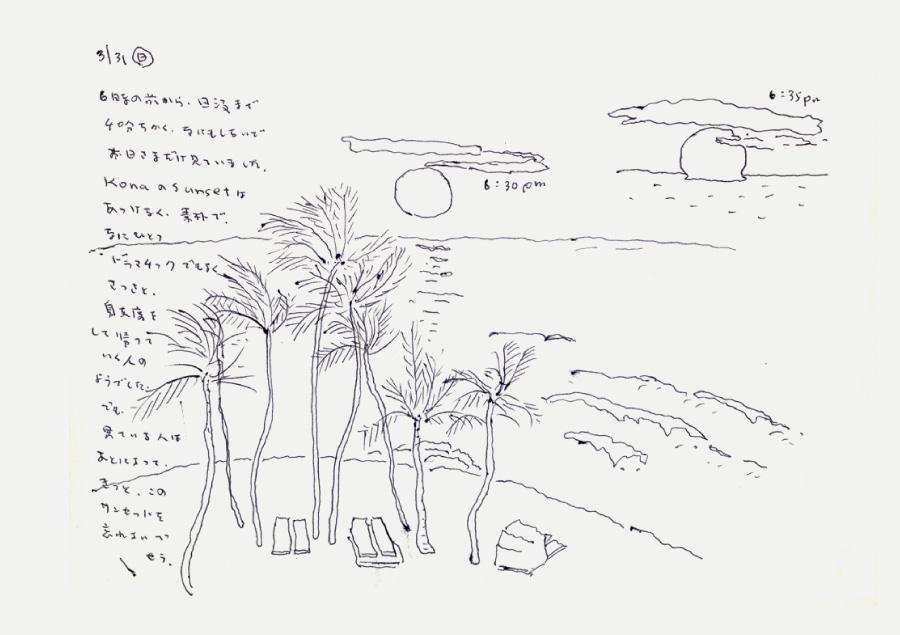 3/31 日
6時の前から、日没まで
40分ちかく、なにもしないで
お日さまだけ見ていました。
Konaのsunsetは
あっけなく、素朴で、
なにひとつ
ドラマチックでもなく
さっさと、
身支度を
して帰って
いく人の
ようでした。
でも、
見ている人は
あとになって、
きっと、この
サンセットを
忘れないで
せう。
6:30pm
6:35pm